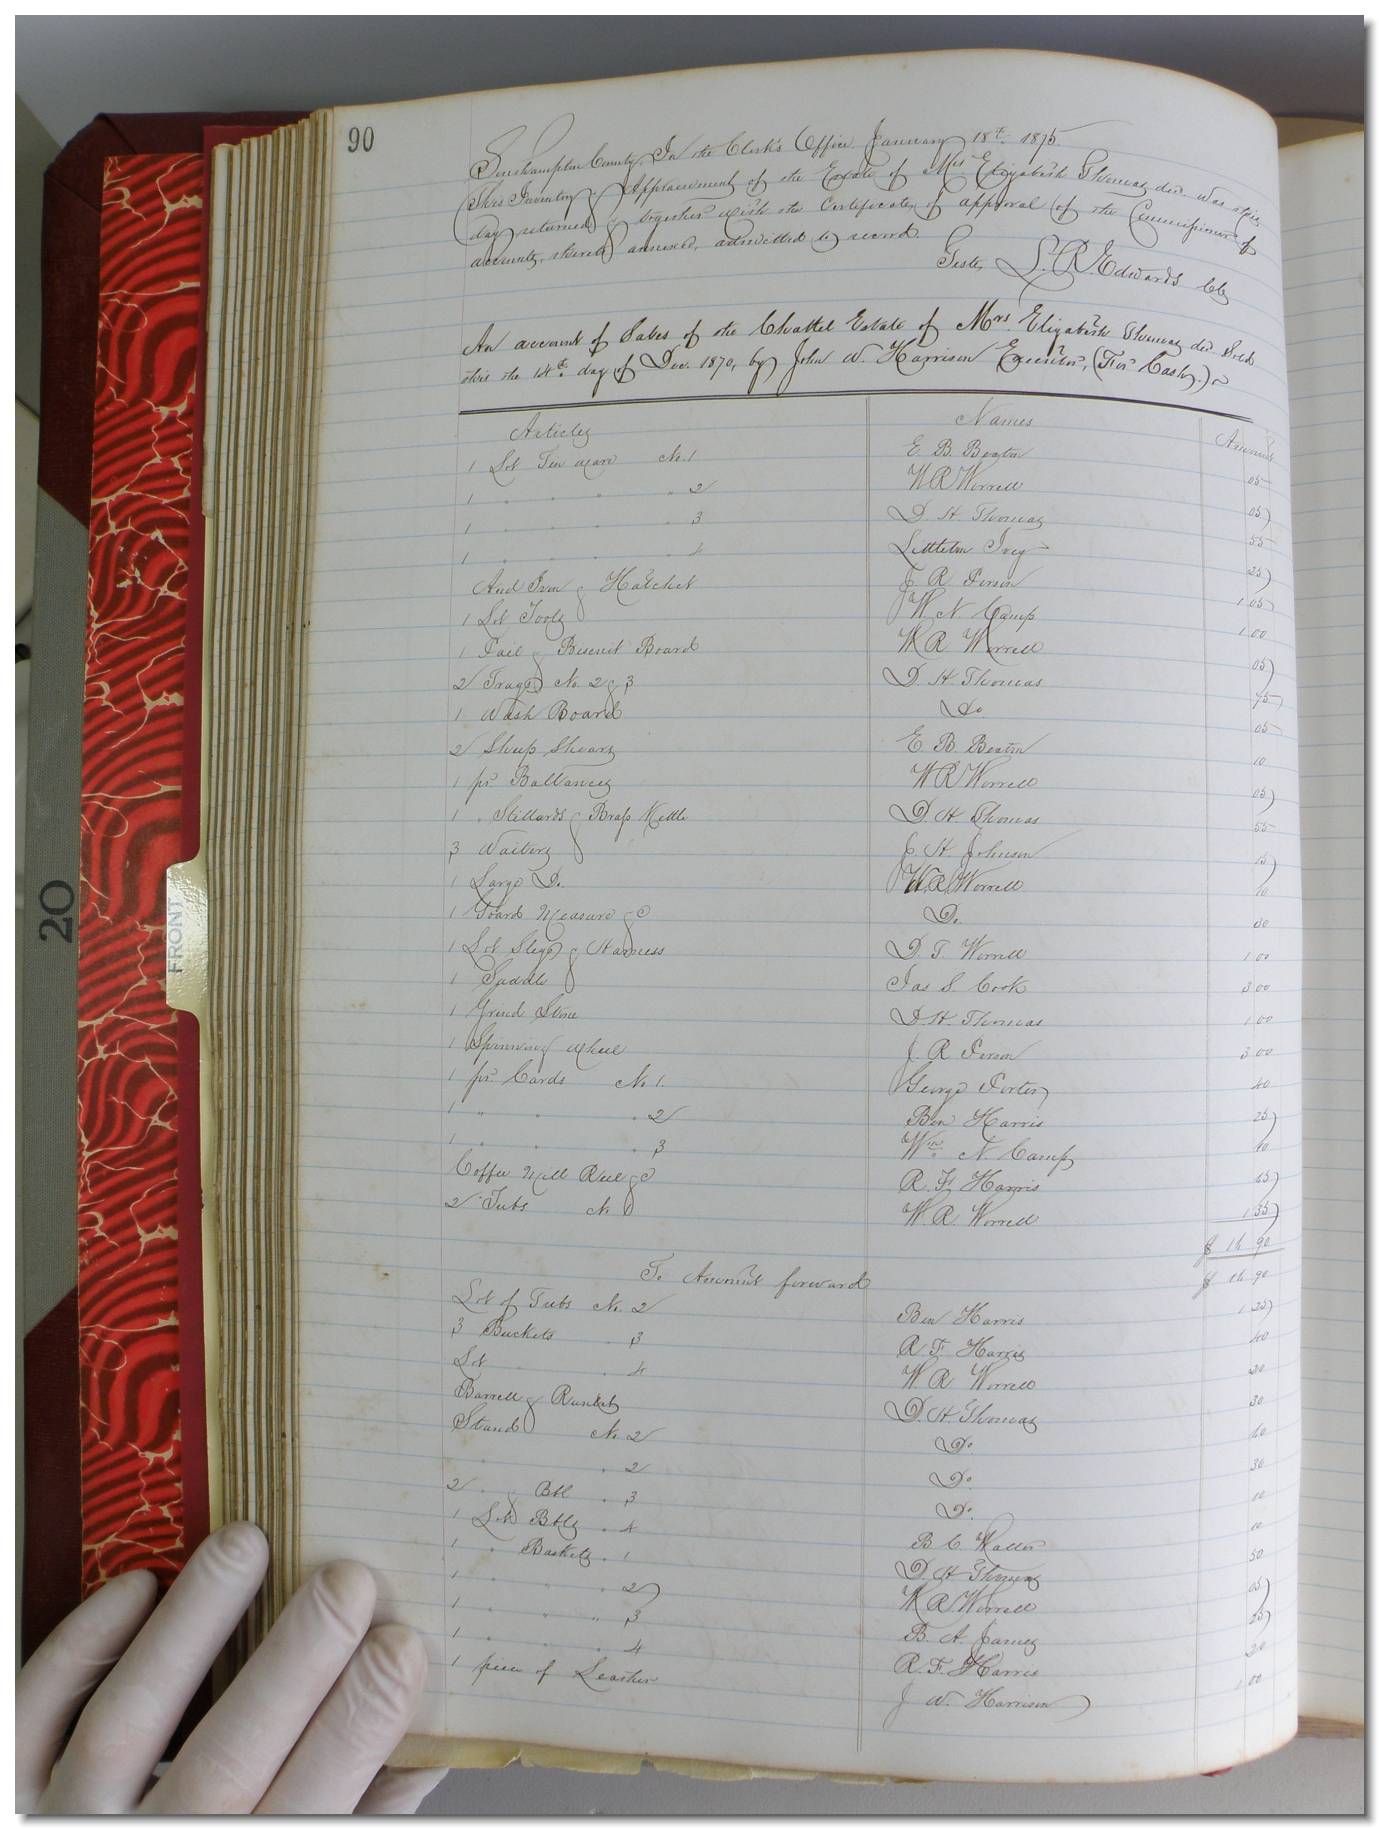 90
Southampton County. In the Clerk's Office January 18th 1875.
This Inventory & Appraisement of the Estate of Mrs Elizabeth Thomas decd was this
day returned & together with the Certificate of approval of the Commissioner of
accounts, thereto annexed, admitted to record.
Teste, L. R. Edwards Clk
An account of Sales of the Chattel Estate of Mrs. Elizabeth Thomas decd Sold
this the 14th day of Dec. 1870, by John W. Harrison Executor, (For Cash.)
Articles Names Amount
1 Lot Tin ware No. 1 E. B. Beaton 05
1 " " " " 2 W R Worrell 05
1 " " " " 3 D. H. Thomas 55
1 " " " " 4 Littleton Ivey 25
And Iron & Hatchet J. R. Person 1 05
1 Lot Tools W. N. Camp 1 00
1 Pail & Biscuit Board W R Worrell 05
2 Trays No. 2 & 3 D. H Thomas 75
1 Wash Board Do. 05
2 Sheep Shears E. B. Beaton 10
1 pr. Ballances W R Worrell 05
1 " Stillards & Brass Kettle D. H. Thomas 55
3 Waiters J. H. Johnson 15
1 Large Do. W. R. Worrell 10
1 Goard Measure &c Do. 30
1 Lot Sleys & Harness D. T. Worrell 1 00
1 Saddle Jas S. Cook 3 00
1 Grind Stone D. H. Thomas 1 00
1 Spinning wheel J. R Person 3 00
1 pr. Cards No 1. George Porter 40
1 " " " 2 Ben Harris 25
1 " " " 3 Wm N Camp 40
Coffee Mill Reel &c R. F. Harris
2 Tubs No 1 W. R. Worrell 1 35
$ 90
To Amount forward $ 90
Lot of Tubs No. 2 Ben Harris 1 25
3 Buckets " 3 R F. Harris 40
Lot " " 4 W. R Worrell 20
Barrell & Runlet D. H. Thomas 30
Stand No. 2 Do
" " 2 Do. 30
2 " & Btl " 3 Do. 10
1 Lot Btls " 4 B C. 10
1 " Baskets " 1 D. H Thomas 50
1 " " " 2 W R. Worrell 05
1 " " " 3 B. A. James 25
1 " " " 4 R. F. Harris 20
1 piece of Leather J W. Harrison 1 00
20
FRONT